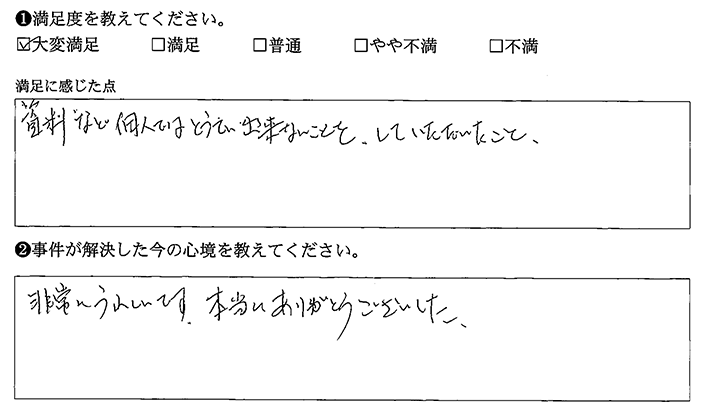 ❶満足度を教えてください。
☑大変満足 □満足 □普通 □やや不満 □不満
満足に感じた点
資料など個人ではとうてい出来ないことを、していただいたこと、
❷事件が解決した今の心境を教えてください。
非常にうれしいです、本当にありがとうございました、